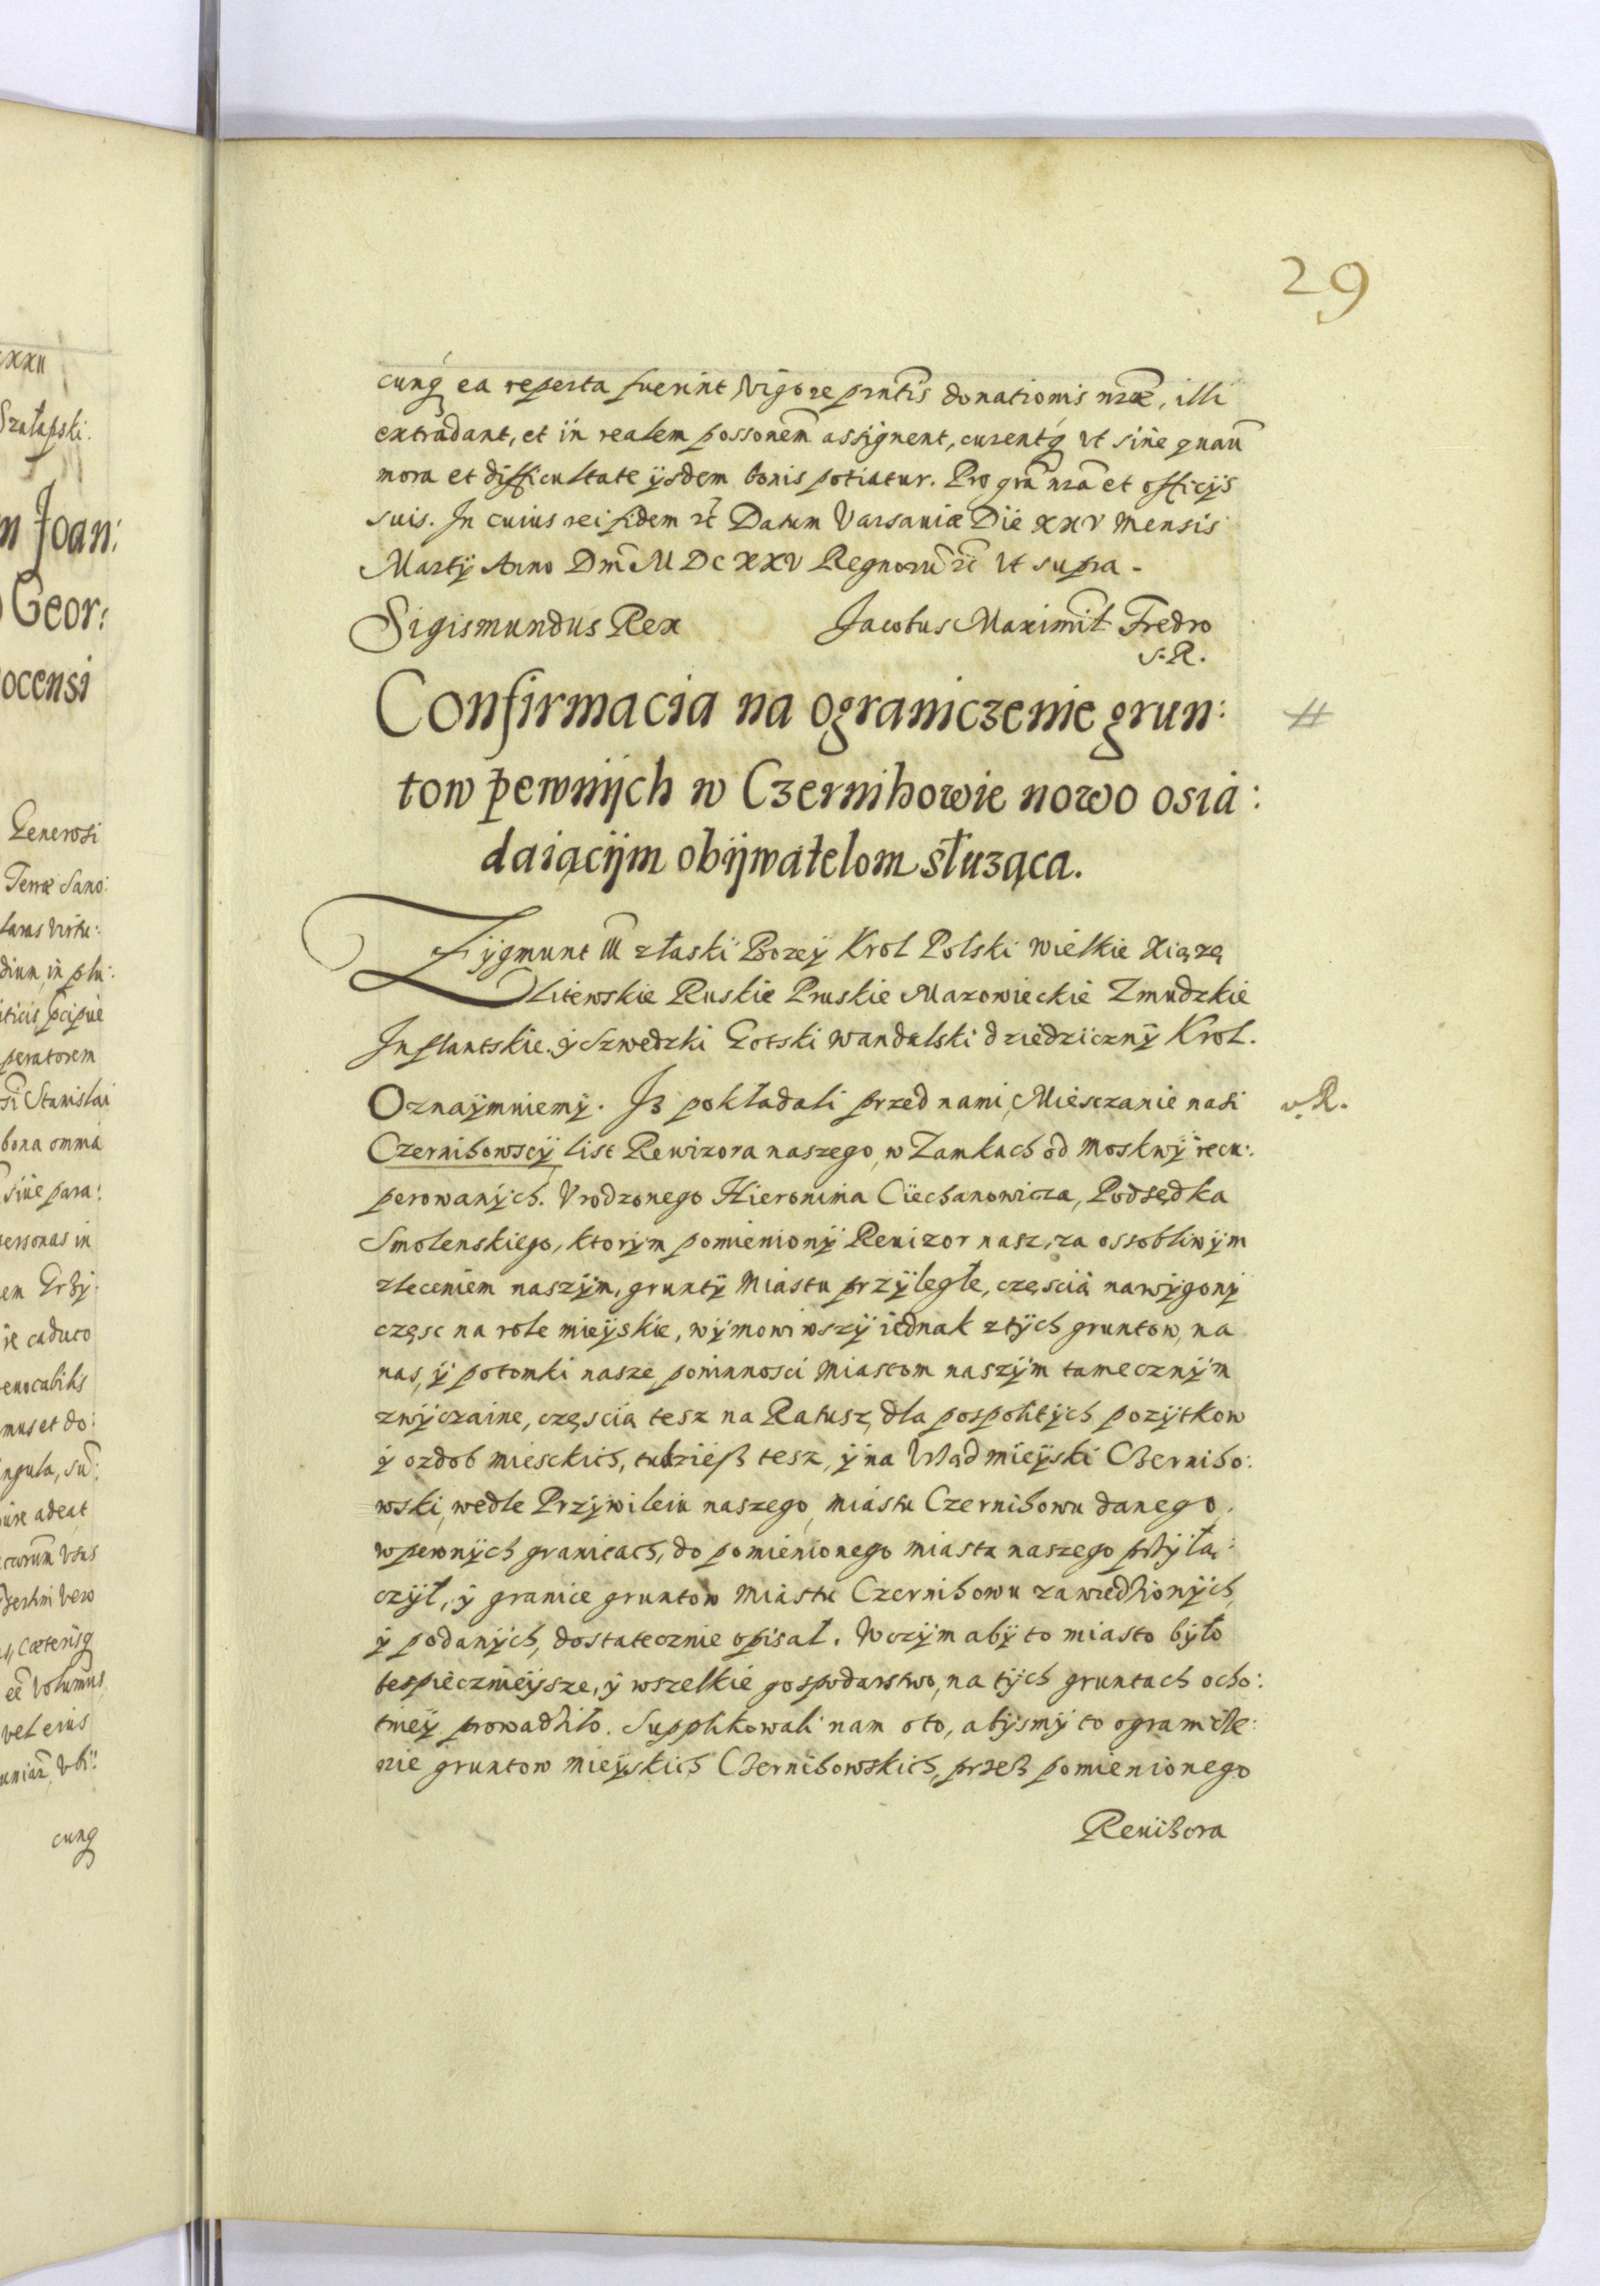 29
cunq ea reperta fuerint vigore prntis donationis nræ, illi
extradant, et in realem possonem assignent, curentq vt sine quau
mora et difficultate ijsdem bonis potiatur. Pro gra nra et officijs
suis. In cuius rei fidem etc Datum Varsauiæ Die XXV Mensis
Martij Anno Dni MDCXXV Regnoru etc vt supra.
Sigismundus Rex Jacobus Maximil Fredro
S. R.
Confirmacia na ograniczenie grun:
#
tow pewnijch w Czernihowie nowo osia:
daiącijm obijwatelom służąca.
Zygmunt III z łaski Bozey Krol Polski wielkie Xiążę
Litewskie Ruskie Pruskie Mazowieckie Zmudzkie
Inflantskie. y Szwedzki Gotski Wandalski dziedziczny Krol.
Oznaymniemy. Iz pokładali przed nami Miesczanie nasi
v. R.
Czernihowscy list Rewizora naszego, w Zamkach od Moskwy recu:
perowanych. Vrodzonego Hieronima Ciechanowicza, Podsędka
Smolenskiego, ktorym pomieniony Reuizor nasz, za ossobliwym
zleceniem naszym, grunty Miastu przyległe, częścią na wygony
częsc na role mieyskie, wymowiwszy iednak z tych gruntow, na
nas, y potomki nasze, powinnosci Miastom naszym tamecznym
zwyczaine, częscią tesz na Ratusz, dla pospolitych pozytkow
y ozdob miesckich, tudzieß tesz, y na Vrząd mieyski Czerniho:
wski, wedle Przywileiu naszego, miastu Czernihowu danego,
w pewnych granicach, do pomienionego miasta naszego przyłą:
czył, y granice gruntow Miastu Czernihowu zawiedzionych,
y podanych, dostatecznie opisał. W czym aby to miasto było
bespiecznieysze, y wszelkie gospodarstwo, na tych gruntach ocho:
tniey prowadziło. Supplikowali nam o to, abysmy to ogranicze:
nie gruntow mieyskich Czernihowskich, przeß pomienionego
Reuizora
xxII
Szałapski.
m Joan:
Geor:
ocensi
Generosi
Terræ Sano:
laras virtu:
dium, in plu:
iticis pcipue
peratorem
si Stanislai
bona omnia
sine para:
personas in
ie caduco
euocabilis
mus et do:
ngula, su:
iure adeat
vsus
vero
Cæterisq
ee volumus,
vel eius
vbi:
cunq